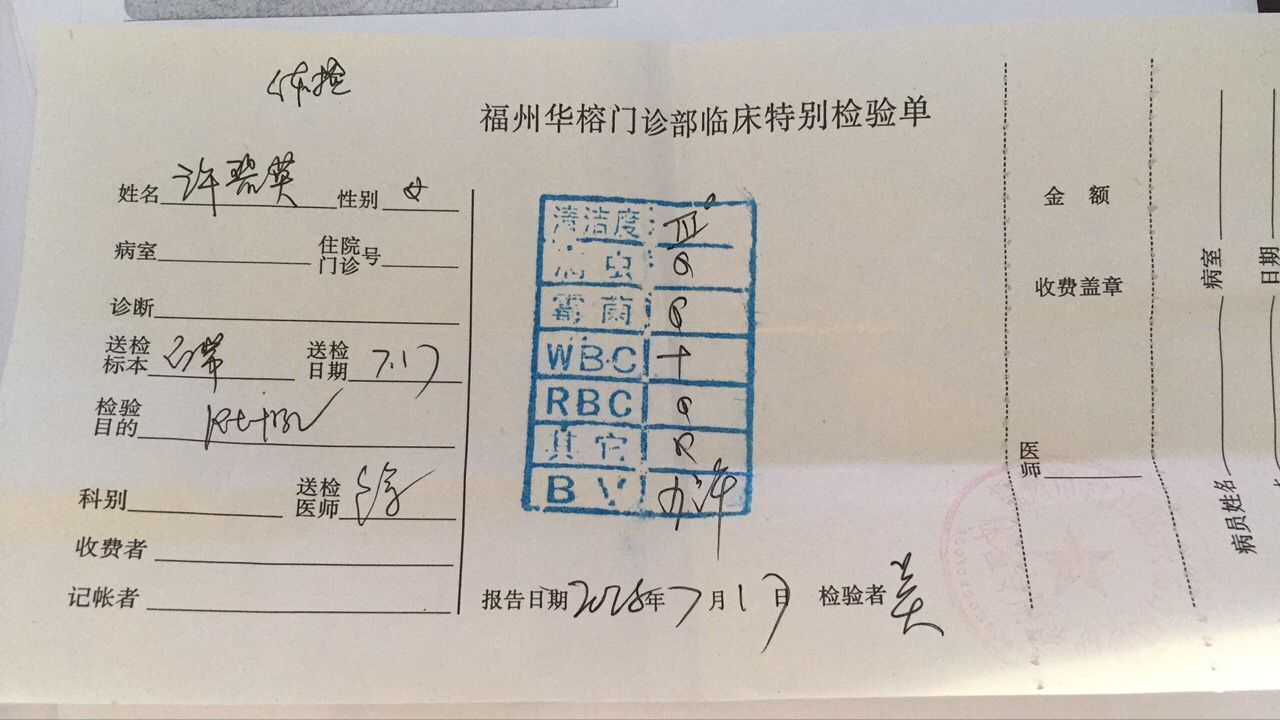 体检
福州华榕门诊部临床特别检验单
姓名 许碧英 性别 女
病室 住院门诊号
诊断
送检标本 白带 送检日期 7.17
检验目的
科别 送检医师
收费者
记帐者
清洁度 III°
滴虫
霉菌
WBC +
RBC
其它
BV
报告日期 年 7 月 17 日 检验者
金 额
收费盖章
医师
病室
病员姓名
日期